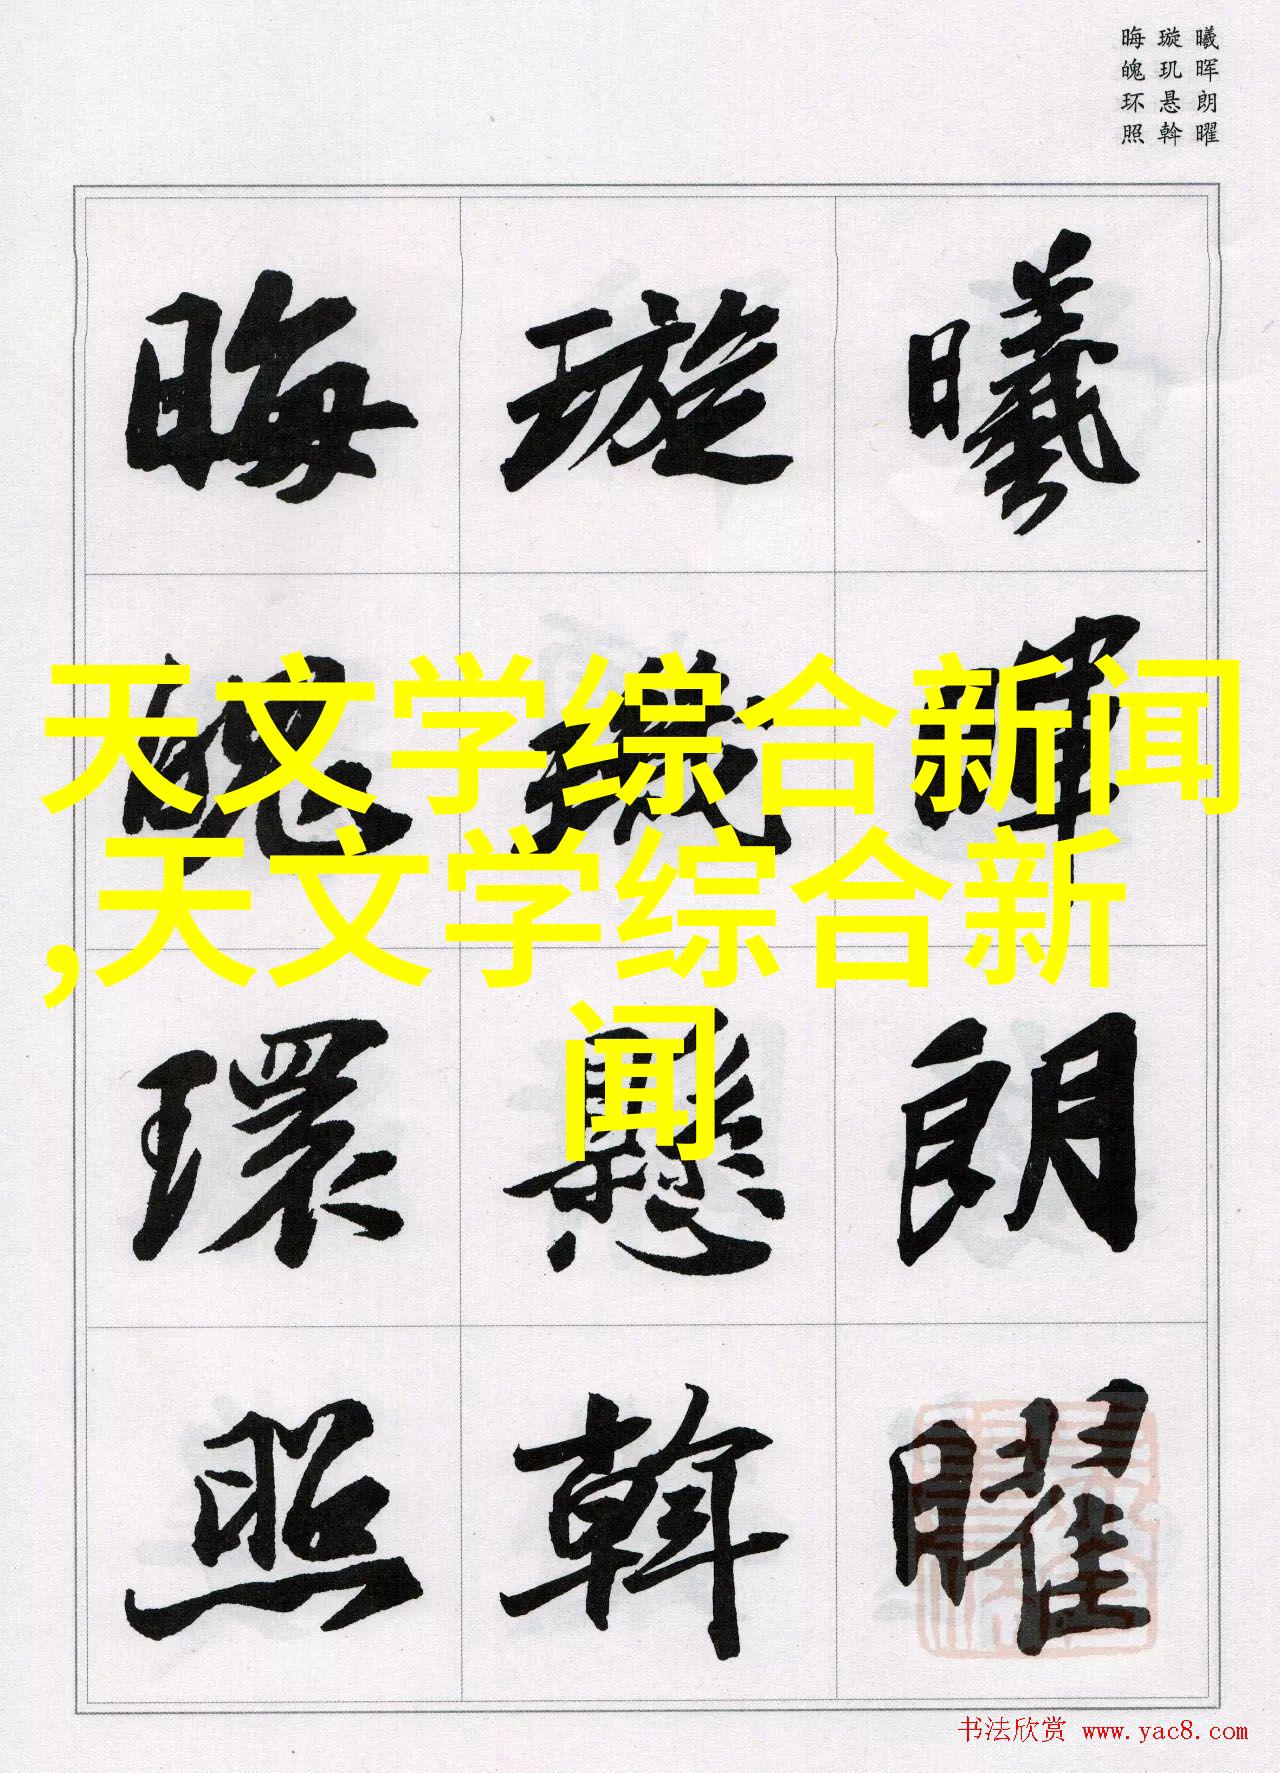 曦晖朗曜
璇玑悬斡
晦魄环照
曦暉朗曜
璇璣懸斡
晦魄環照
天文学综合新闻
,天文学综合新
闻
书法欣赏 www.yac8.com